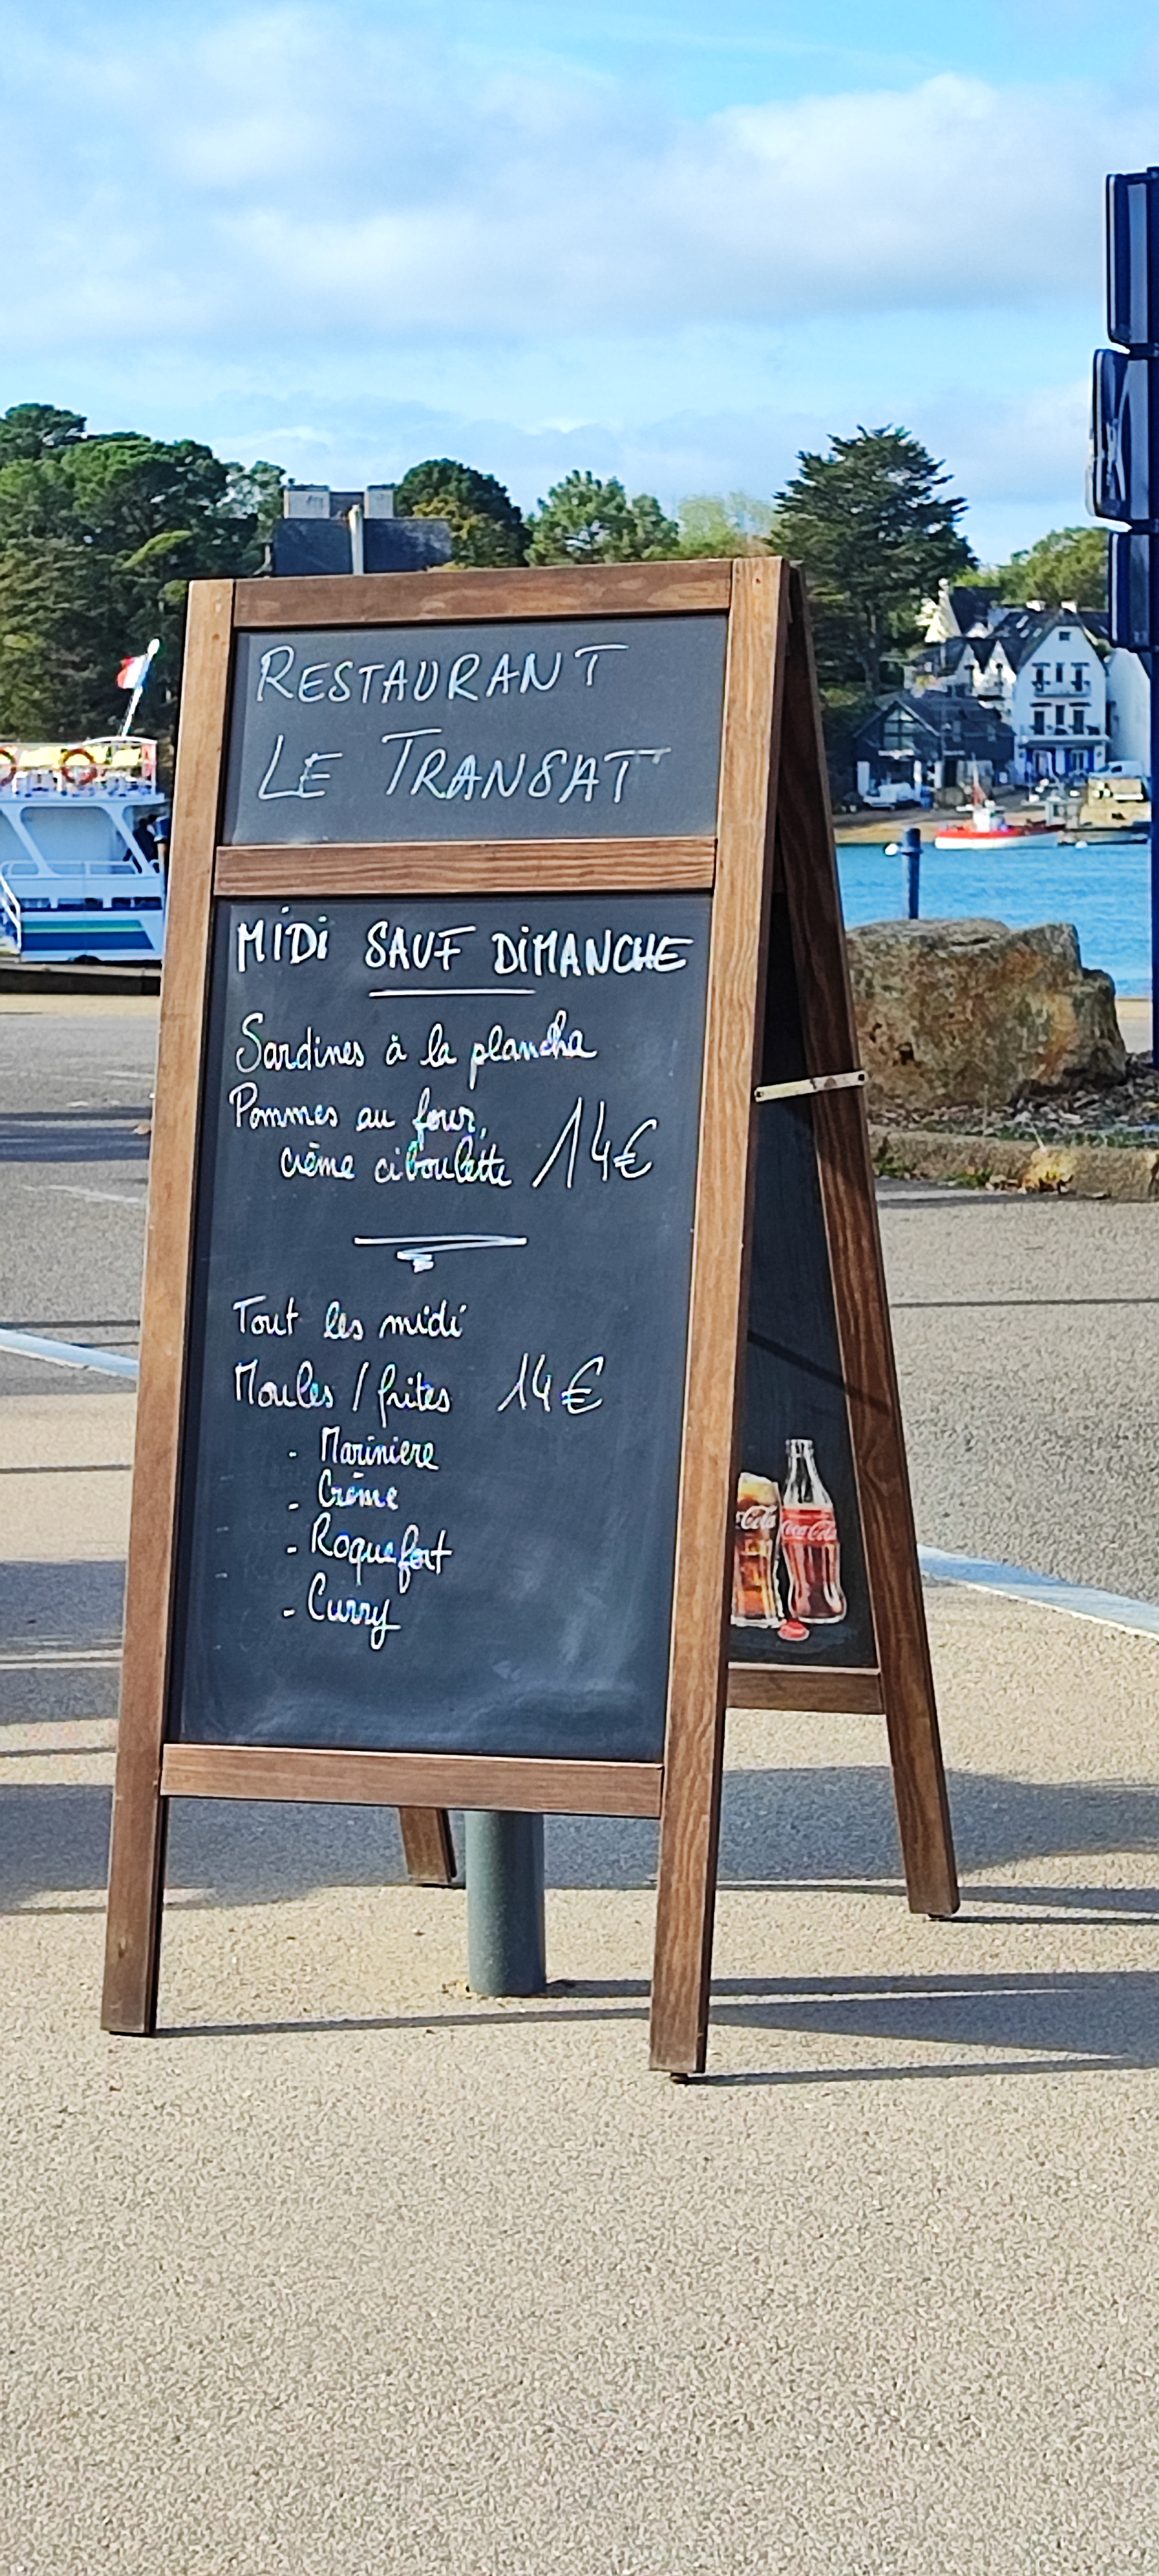 RESTAURANT
LE TRANSAT
MIDI SAUF DIMANCHE
Sardines à la plancha
Pommes au four,
crème ciboulette 14€
Tout les midi
Moules / frites 14€
- Mariniere
- Crème
- Roquefort
- Curry
Coca-Cola